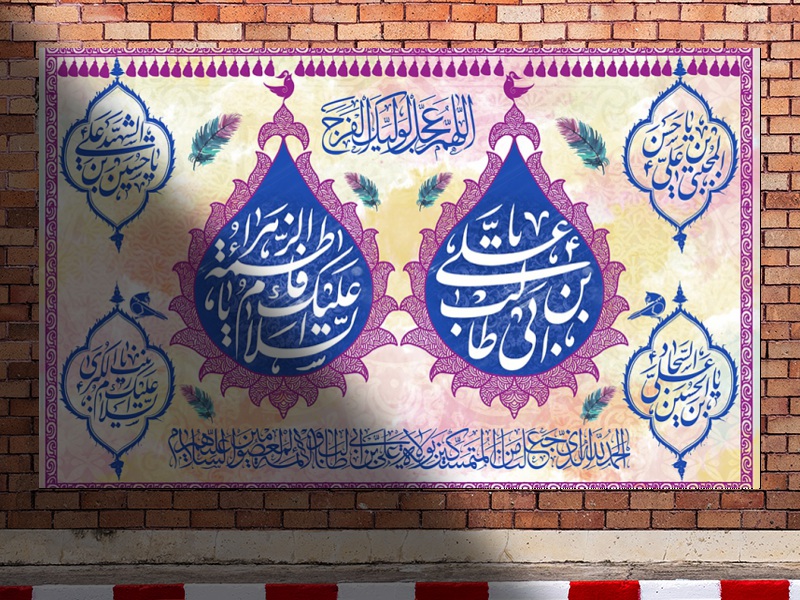 اللهم عجل لولیک الفرج
یا حسن بن علی المجتبی
یا علی بن ابی طالب
السلام علیک یا فاطمة الزهراء
یا حسین بن علی الشهید
یا علی بن الحسین السجاد
السلام علیک یا زینب الکبری
الحمد لله الذی جعلنا من المتمسکین بولایة علی بن ابی طالب و الائمة المعصومین علیهم السلام